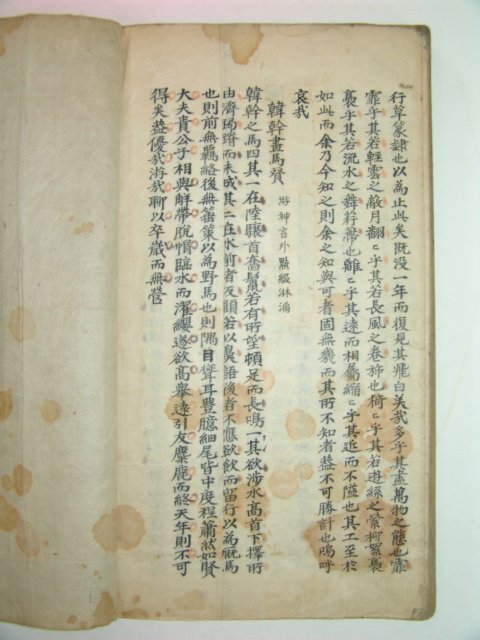 行草篆隸也以為止此矣既没一年而復見其飛白美哉多乎其盡萬物之態也霏
霏乎其若輕雲之蔽月翻〻乎其若長風之卷旆也猗〻乎其若遊絲之縈柳絮裊
裊乎其若流水之舞荇帶也離〻乎其遠而相屬縮〻乎其近而不隘也其工至於
如此而余乃今知之則余之知與可者固無幾而其所不知者盖不可勝計也嗚呼
哀哉
韓幹畫馬贊 將神言外點綴淋漓
韓幹之馬四其一在陸驤首奮鬣若有所望頓足而長鳴一其欲涉水高首下擇所
由濟跼蹐而未成其二在水前者反顧若以鼻語後者不應欲飲而留行以為厩馬
也則前無羈絡後無箠策以為野馬也則隅目聳耳豐臆細尾皆中度程蕭然如賢
大夫貴公子相與解帶脫帽臨水而濯纓遂欲高舉遠引友麋鹿而終天年則不可
得矣盖優哉游哉聊以卒歲而無營